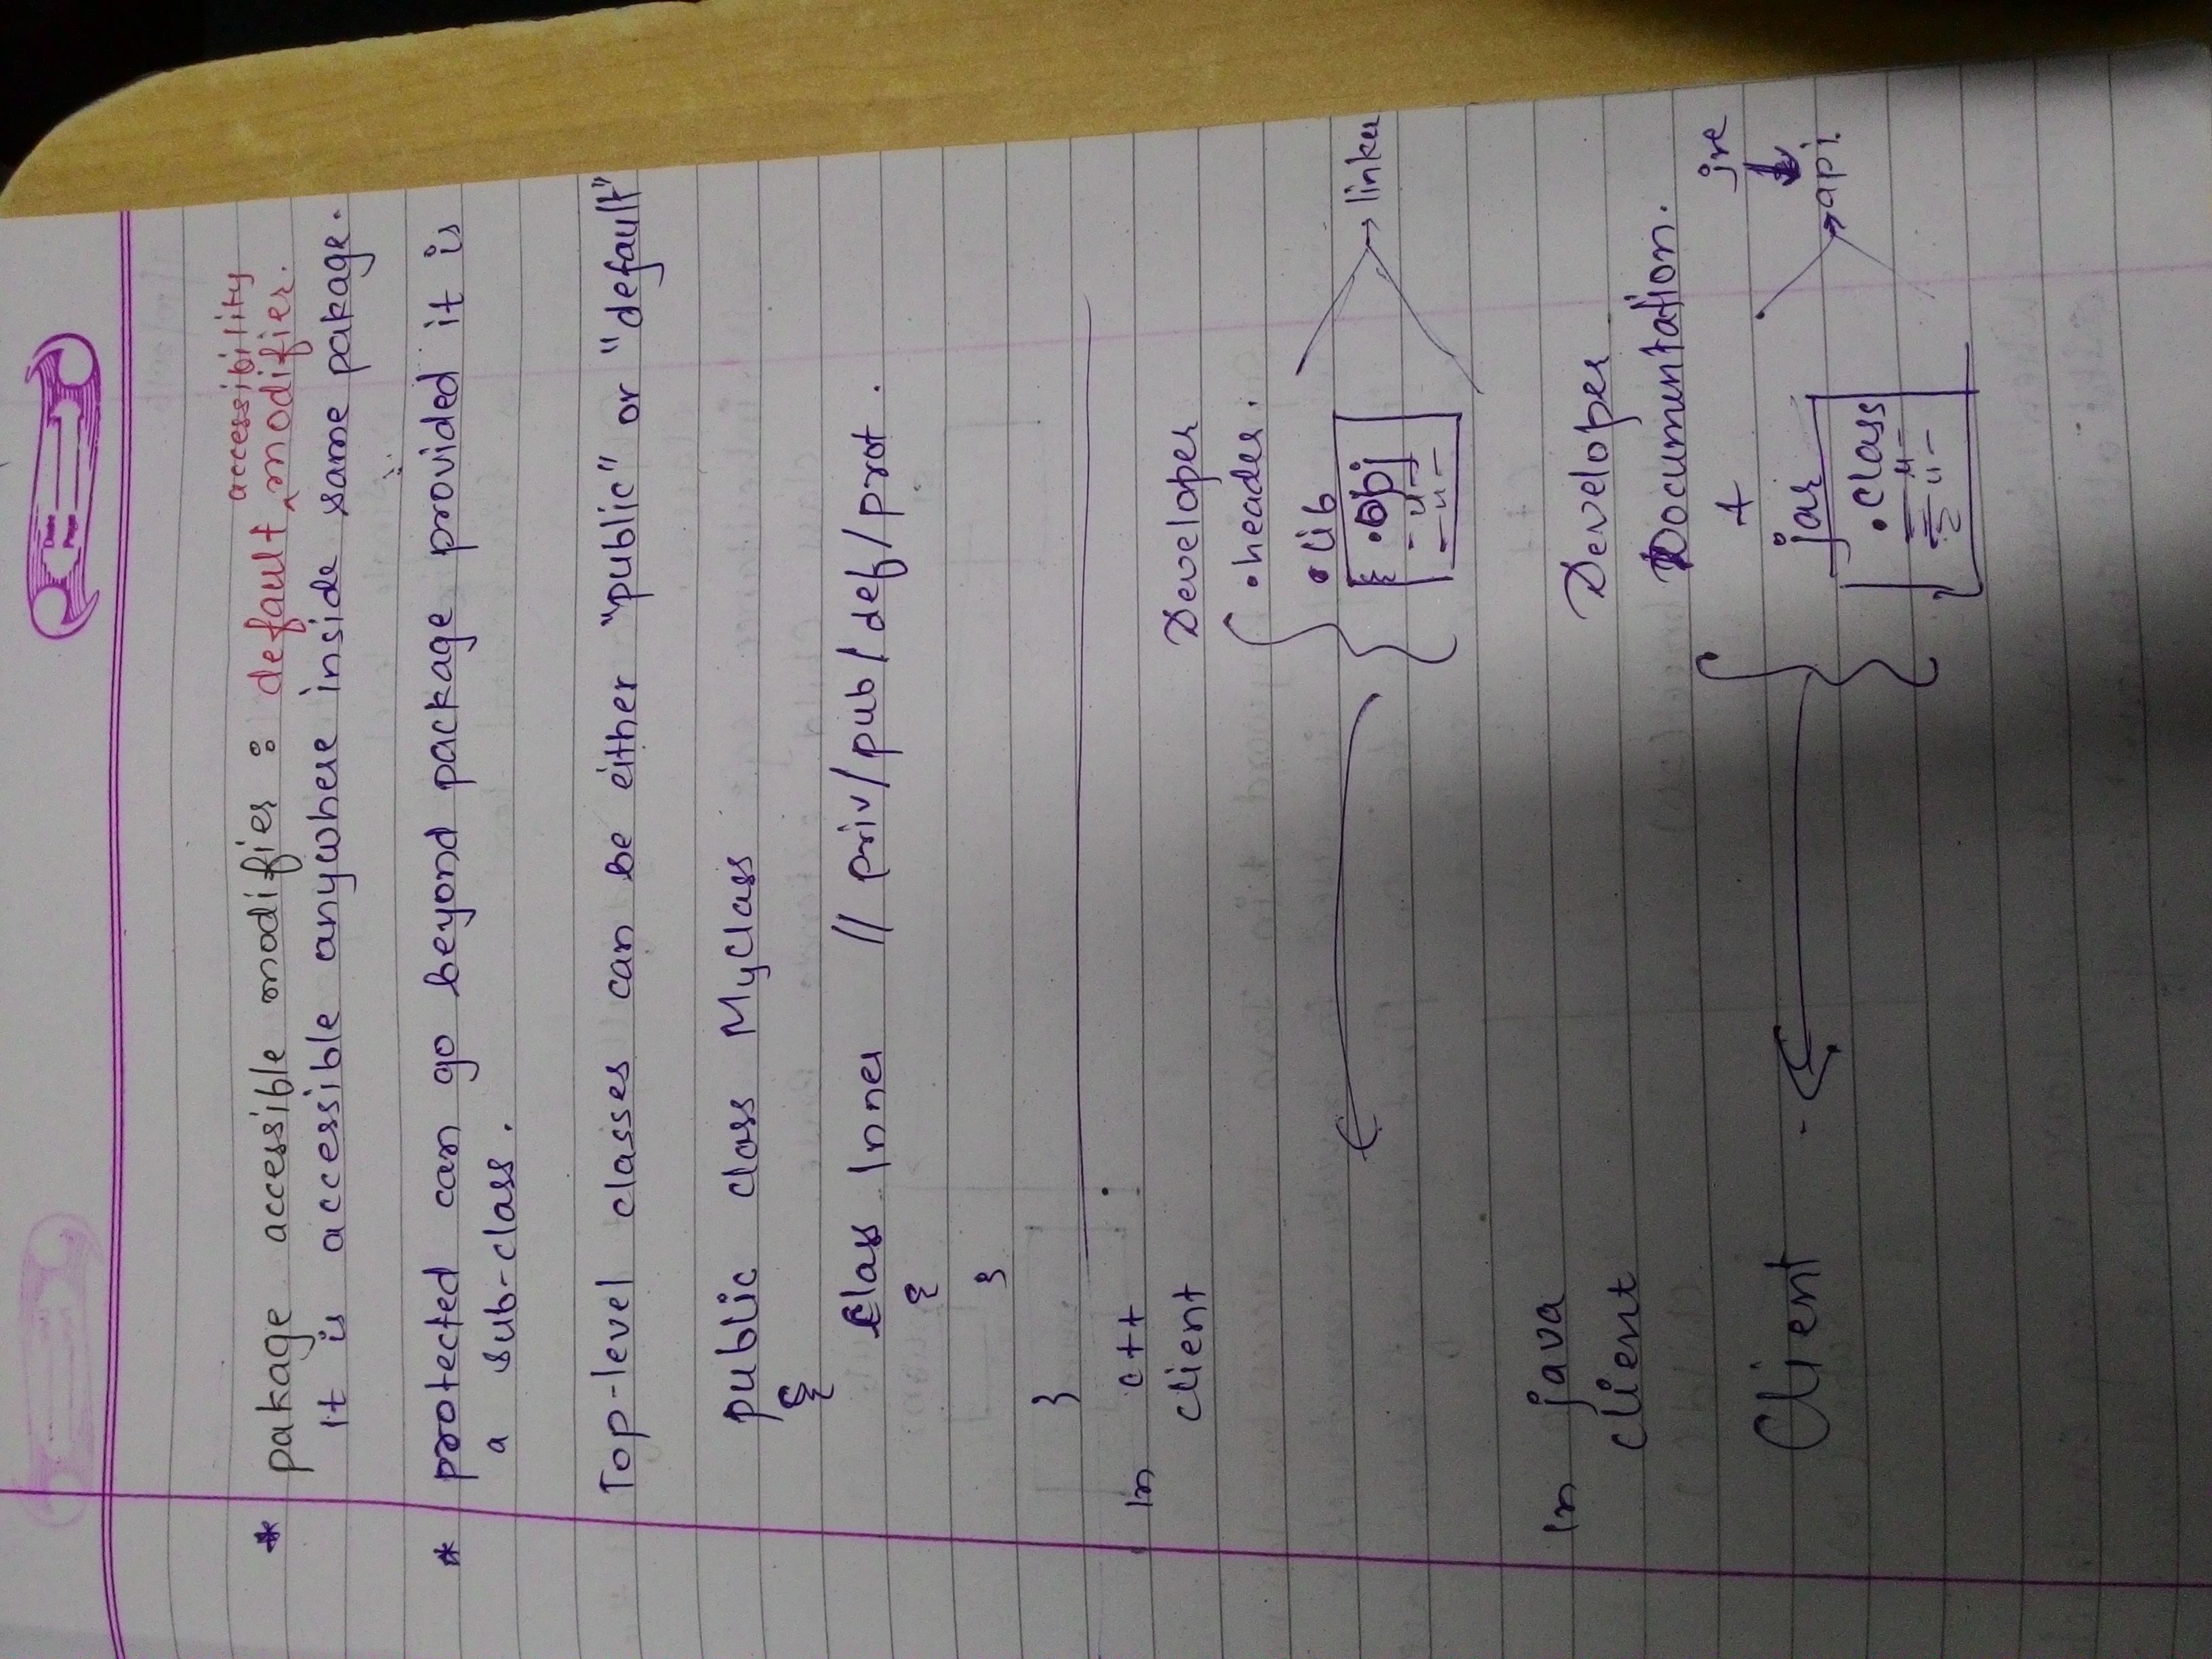 Date
Page
accessibility
* pakage accessible modifier : default ^ modifier.
It is accessible anywhere inside same pakage.
* protected can go beyond package provided it is
a sub-class.
Top-level classes can be either "public" or "default"
public class MyClass
{
class Inner // priv/pub/def/prot.
{
}
}
In c++
client Developer
.header.
.lib
.obj
-"-
-"-
linker
In java
client Developer
Documentation.
+ jre
Client jar api.
.class
-"-
-"-